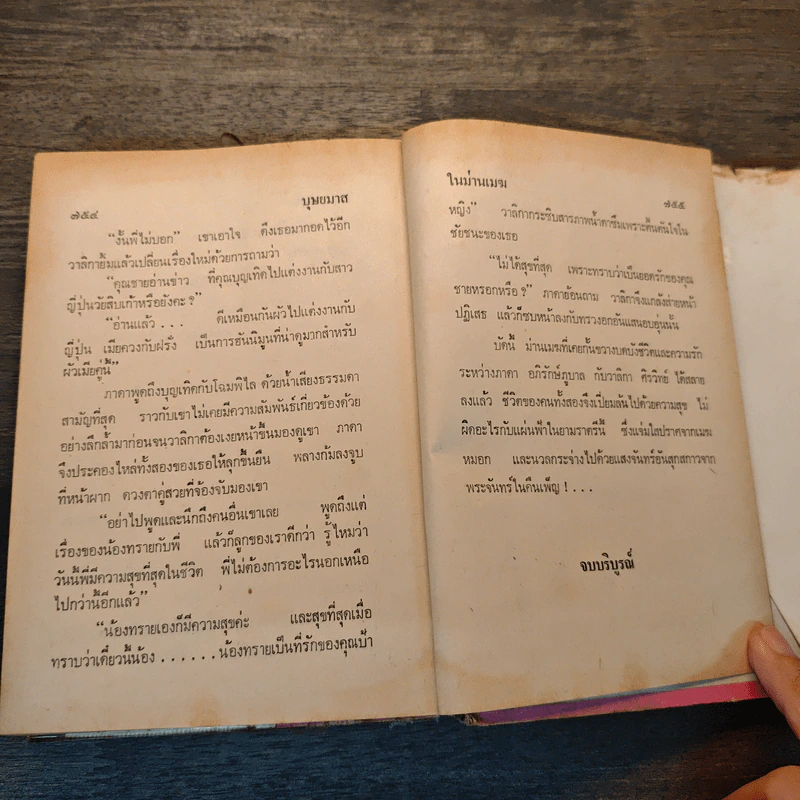 ๗๕๔ บุษยมาส
“งั้นพี่ไม่บอก” เขาเอาใจ ดึงเธอมากอดไว้อีก
วาลิกายิ้มแล้วเปลี่ยนเรื่องใหม่ด้วยการถามว่า
“คุณชายอ่านข่าว ที่คุณบุญเทิดไปแต่งงานกับสาว
ญี่ปุ่นวัยสิบเก้าหรือยังคะ ?”
“อ่านแล้ว . . . ดีเหมือนกันผัวไปแต่งงานกับ
ญี่ปุ่น เมียควงกับฝรั่ง เป็นการฮันนิมูนที่น่าดูมากสำหรับ
ผัวเมียคู่นี้”
ภาดาพูดถึงบุญเทิดกับโฉมพิไล ด้วยน้ำเสียงธรรมดา
สามัญที่สุด ราวกับเขาไม่เคยมีความสัมพันธ์เกี่ยวข้องด้วย
อย่างลึกล้ำมาก่อนจนวาลิกาต้องเงยหน้าขึ้นมองดูเขา ภาดา
จึงประคองไหล่ทั้งสองของเธอให้ลุกขึ้นยืน พลางก้มลงจูบ
ที่หน้าผาก ดวงตาคู่สวยที่จ้องจับมองเขา
“อย่าไปพูดและนึกถึงคนอื่นเขาเลย พูดถึงแต่
เรื่องของน้องทรายกับพี่ แล้วก็ลูกของเราดีกว่า รู้ไหมว่า
วันนี้พี่มีความสุขที่สุดในชีวิต พี่ไม่ต้องการอะไรนอกเหนือ
ไปกว่านี้อีกแล้ว”
“น้องทรายเองก็มีความสุขค่ะ และสุขที่สุดเมื่อ
ทราบว่าเดี๋ยวนี้น้อง . . . . . . น้องทรายเป็นที่รักของคุณป้า
ในม่านเมฆ ๗๕๕
หญิง” วาลิกากระซิบสารภาพน้ำตาซึมเพราะตื้นตันใจใน
ชัยชนะของเธอ
“ไม่ได้สุขที่สุด เพราะทราบว่าเป็นยอดรักของคุณ
ชายหรอกหรือ ?” ภาดาย้อนถาม วาลิกาจึงแกล้งส่ายหน้า
ปฏิเสธ แล้วก็ซบหน้าลงกับทรวงอกอันแสนอบอุ่นนั้น
บัดนี้ ม่านเมฆที่เคยกั้นขวางบดบังชีวิตและความรัก
ระหว่างภาดา อภิรักษ์ภูบาล กับวาลิกา ศิรวิทย์ ได้สลาย
ลงแล้ว ชีวิตของคนทั้งสองจึงเปี่ยมล้นไปด้วยความสุข ไม่
ผิดอะไรกับแผ่นฟ้าในยามราตรีนี้ ซึ่งแจ่มใสปราศจากเมฆ
หมอก และนวลกระจ่างไปด้วยแสงจันทร์อันสุกสกาวจาก
พระจันทร์ในคืนเพ็ญ ! . . .
จบบริบูรณ์